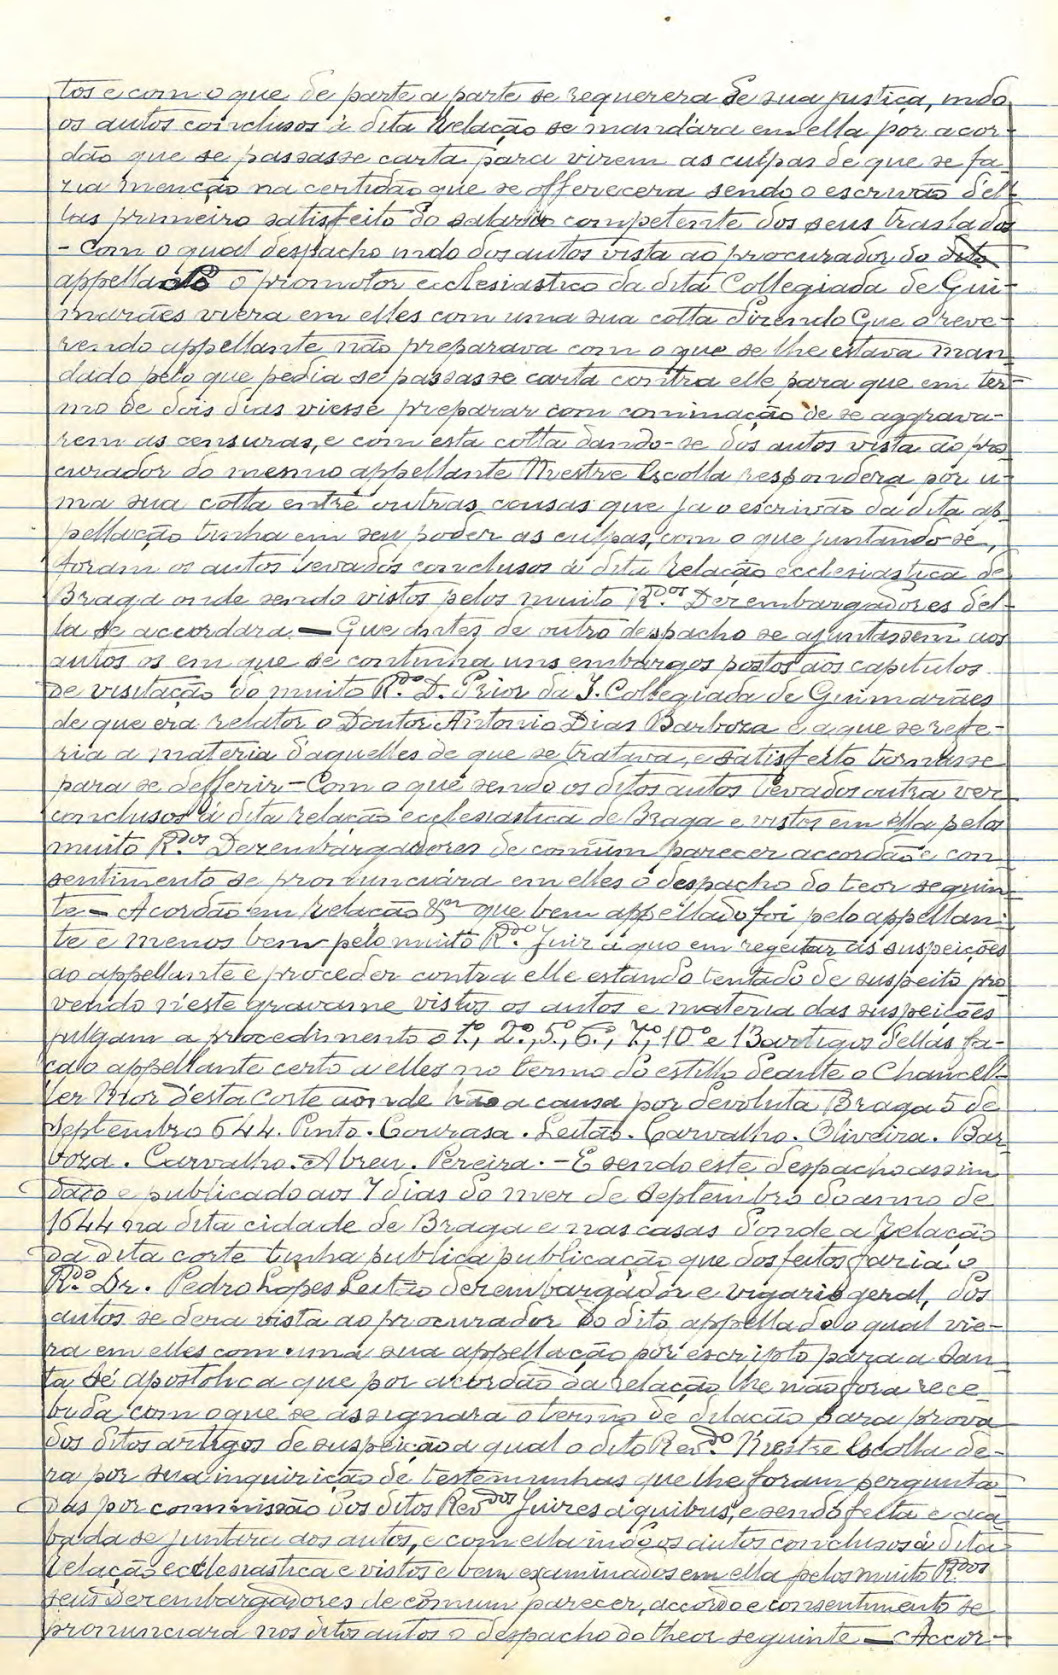 tos e com o que de parte a parte se requerera de sua justiça, indo
os autos conclusos á dita Relação se mandára em ella por acor-
dão que se passasse carta para virem as culpas de que se fa-
zia menção na certidão que se offerecera sendo o escrivão del-
las primeiro satisfeito do salario competente dos seus traslados
- Com o qual despacho indo dos autos vista ao procurador do dito
appellado o promotor ecclesiastico da dita Collegiada de Gui-
marães viera em elles com uma sua cotta dizendo Que o reve-
rendo appellante não preparava com o que se lhe estava man-
dado pelo que pedia se passasse carta contra elle para que em ter-
mo de dois dias viesse preparar com cominação de se aggrava-
rem as censuras, e com esta cotta dando-se dos autos vista ao pro
curador do mesmo appellante Mestre Escolla respondera por u-
ma sua cotta entre outras cousas que ja o escrivão da dita ap-
pellação tinha em seu poder as culpas, com o que juntando-se,
foram os autos levados conclusos á dita Relação ecclesiastica de
Braga onde sendo vistos pelos muito R.dos Dezembargadores del-
la se accordara — Que antes de outro despacho se ajuntassem aos
autos os em que se continha uns embargos postos aos capitulos
de visitação do muito R.do D. Prior da I. Collegiada de Guimarães
de que era relator o Doutor Antonio Dias Barboza e a que se refe-
ria a materia d'aquelles de que se tratava, e satisfeito tornasse
para se defferir - Com o que sendo os ditos autos levados outra vez
conclusos á dita relação ecclesiastica de Braga e vistos em ella pelos
muito R.dos Dezembargadores de comum parecer accordão e con
sentimento se pronunciára em elles o despacho do teor seguin-
te - Acordão em relação &ca que bem appellado foi pelo appellan-
te e menos bem pelo muito R.do Juiz a quo em regeitar as suspeições
ao appellante e proceder contra elle estando tentado de suspeito pro
vendo n'este gravame vistos os autos e materia das suspeições
julgam a procedimento o 1.º, 2.º, 5.º, 6.º, 7.º, 10.º e 13 artigos dellas fa-
ça o appellante certo a elles no termo do estillo deante o Chancel-
ler Mor d'esta Corte aonde hão a causa por devoluta Braga 5 de
Septembro 644. Pinto. Courasa. Leitão. Carvalho. Oliveira. Bar-
boza. Carvalho. Abreu. Pereira. - E sendo este despacho assim
dado e publicado aos 7 dias do mez de Septembro do anno de
1644 na dita cidade de Braga e nas casas donde a Relação
da dita corte tinha publica publicação que dos feitos faria o
R.do Dr. Pedro Lopes Leitão dezembargador e vigario geral, dos
autos se dera vista ao procurador do dito appellado o qual vie-
ra em elles com uma sua appellação por escripto para a San
ta Sé apostolica que por acordão da relação lhe não fora rece
bida com o que se assignara o termo de dilação para prova
dos ditos artigos de suspeição a qual o dito Rev.do Mestre Escolla de-
ra por sua inquirição de testemunhas que lhe foram pergunta-
das por commissão dos ditos Rev.dos Juizes a quibus, e sendo feita e aca-
bada se juntara aos autos, e com ella indo os autos conclusos á dita
relação ecclesiastica e vistos e bem examinados em ella pelos muito R.dos
seus Dezembargadores de comum parecer, accordo e consentimento se
pronunciara nos ditos autos o despacho do theor seguinte — Accor-